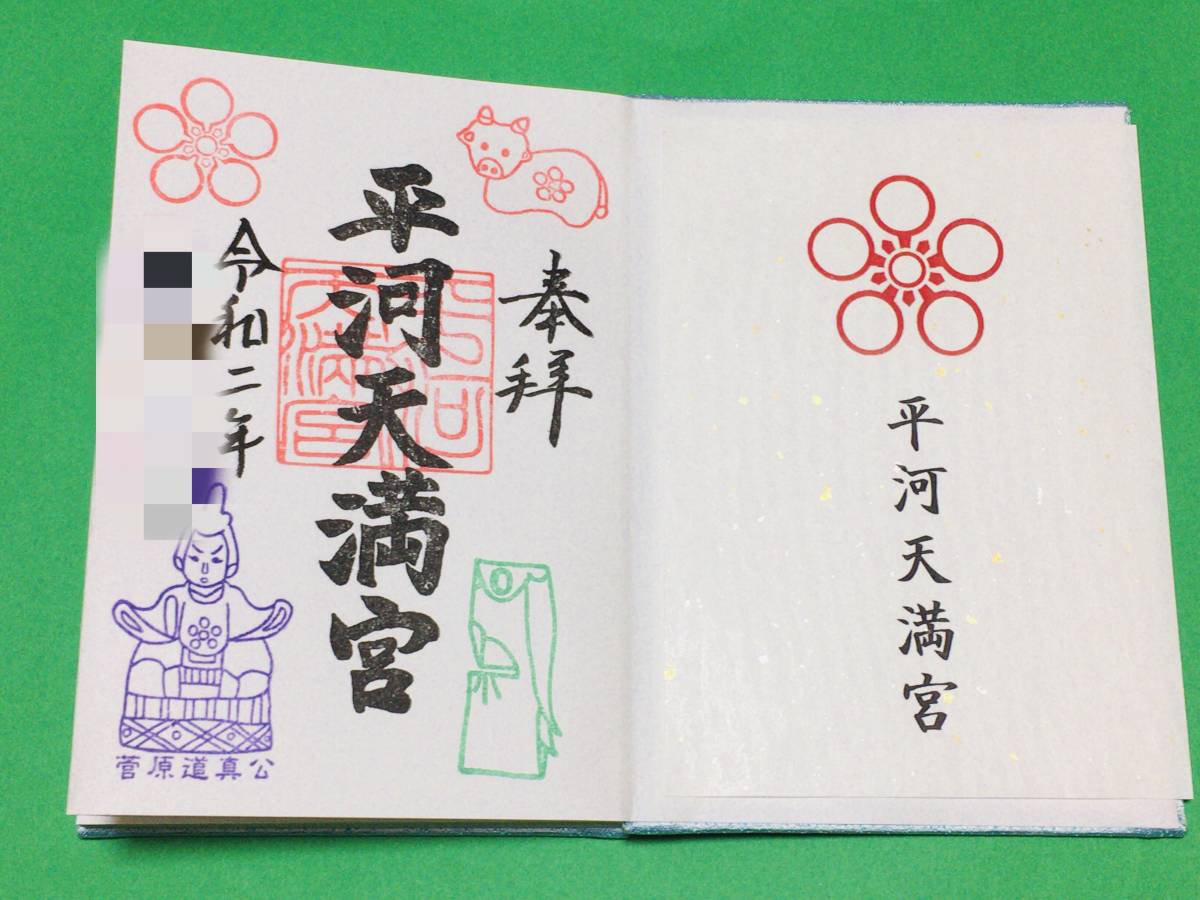 平河天満宮
奉拝
平河天満宮
平河天満宮
令和二年
菅原道真公